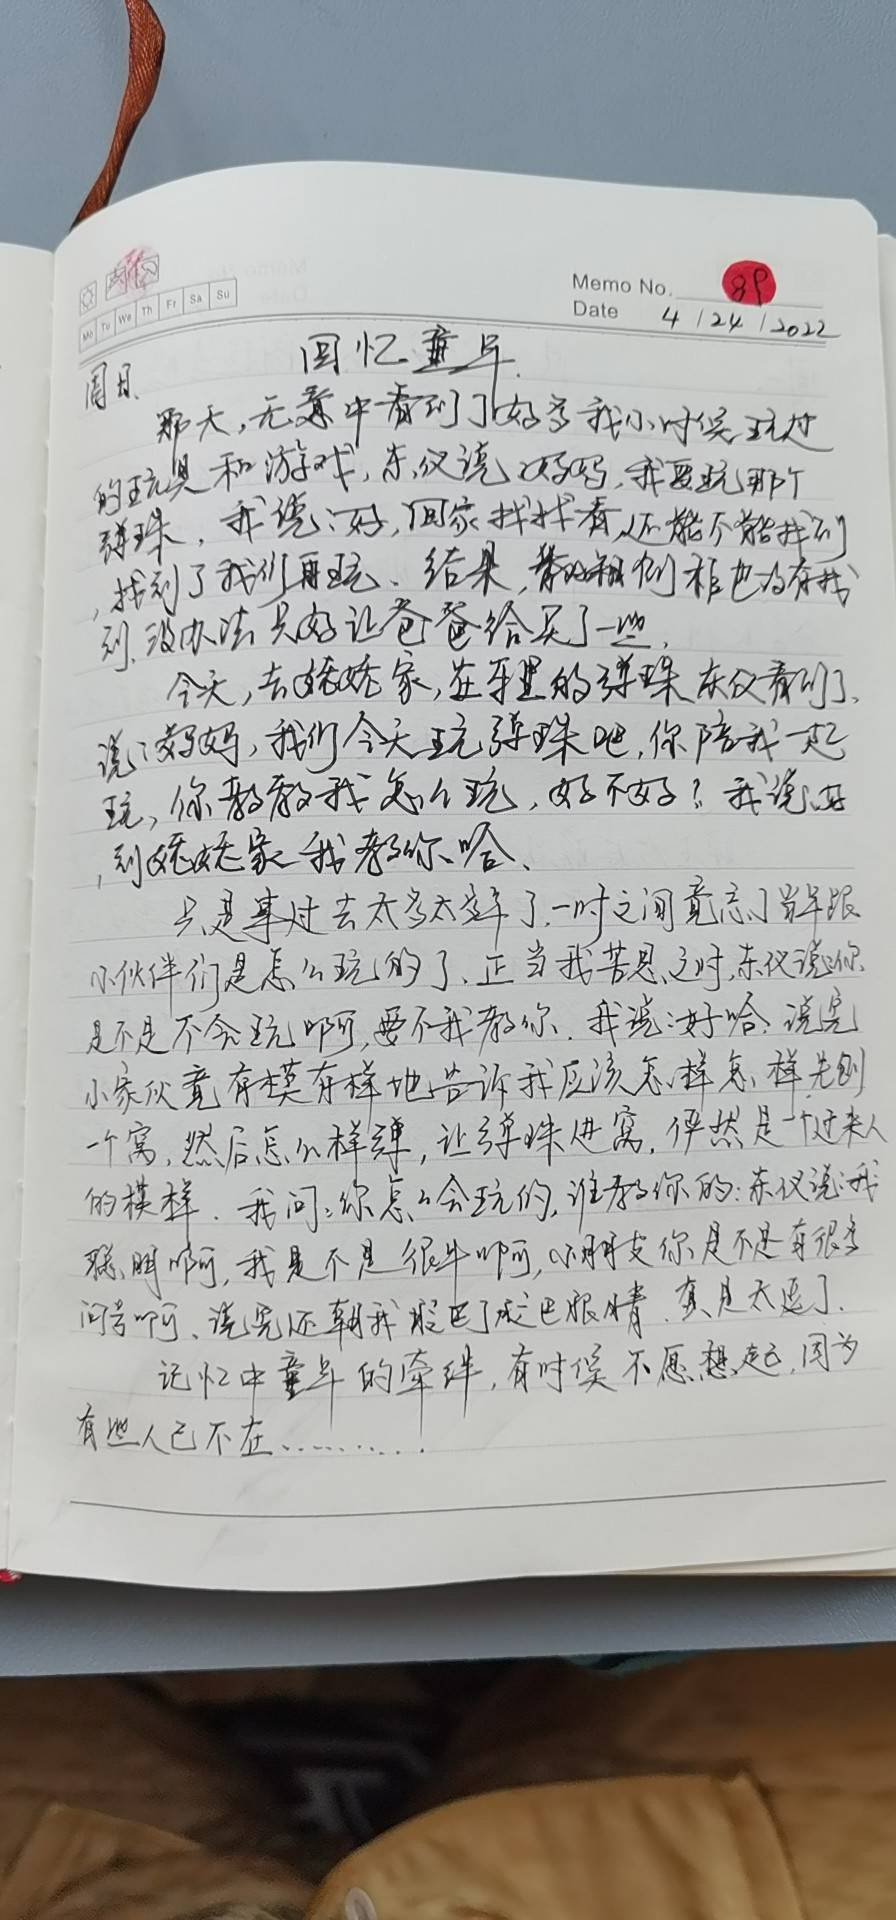 Mo Tu We Th Fr Sa Su
Memo No. 89
Date 4/24/2022
周日. 回忆童年.
那天,无意中看到了好多我小时候玩过
的玩具和游戏,东仪说:妈妈,我要玩那个
弹珠,我说:好,回家找找看,还能不能找到
,找到了我们再玩、结果,翻箱倒柜也没有找
到.没办法只好让爸爸给买了一些,
今天,去姥姥家,在车里的弹珠东仪看到了、
说:妈妈,我们今天玩弹珠吧,你陪我一起
玩,你教教我怎么玩,好不好?我说:好
,到姥姥家我教你哈、
只是事过去太多太多年了.一时之间竟忘了当年跟
小伙伴们是怎么玩的了、正当我苦思之时,东仪说:你
是不是不会玩啊,要不我教你.我说:好哈.说完
小家伙竟有模有样地告诉我应该怎样怎样先刨
一个窝,然后怎么样弹,让弹珠进窝,俨然是一个过来人
的模样.我问:你怎么会玩的,谁教你的:东仪说:我
聪明啊,我是不是很牛啊,小朋友你是不是有很多
问号啊、说完还朝我眨巴了眨巴眼睛.真是太逗了.
记忆中童年的牵绊,有时候不愿想起,因为
有些人已不在..........